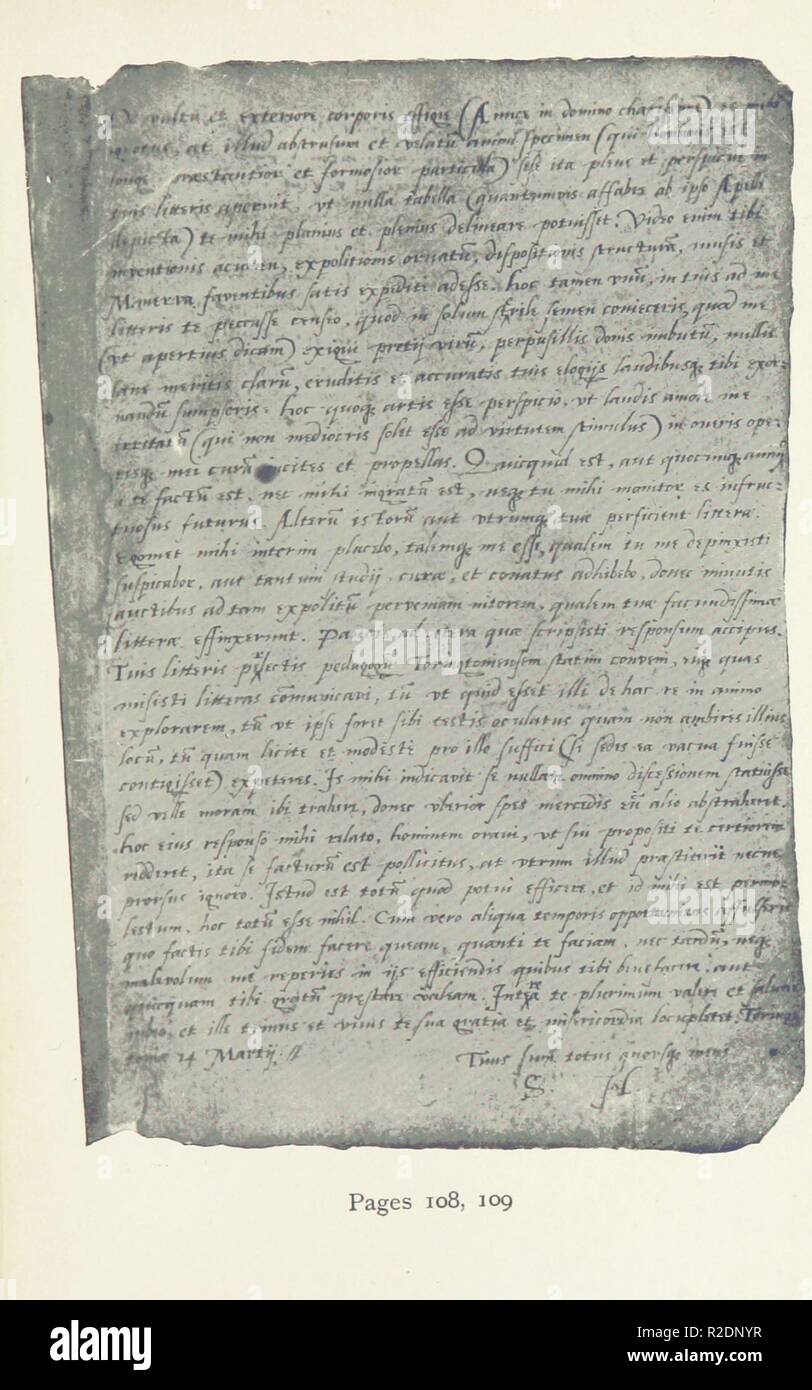 vultu et exteriore corporis effigie (Amice in domino charissime)
ignotus, at illud abstrusum et velatũ animi specimen (qui hominis est
longe præstantior et formosior particula) sese ita plene et perspicue in
tuis litteris aperuit, vt nulla tabella (quantumvis affabre ab ipso Apelle
depicta) te mihi planius et plenius delineare potuisset. Video enim tibi
inventionis acumen, expolitionis ornatũ, dispositionis structurã, musis et
Minerva faventibus satis expedite adesse. hoc tamen vnũ, in tuis ad me
litteris te peccasse censeo, quod in solum sterile semen conieceris, quod me
(vt apertius dicam) exigui pretij virũ, perpusillis donis imbutũ, nullis
lans meritis clarũ, eruditis et accuratis tuis elogijs laudibusqꝫ tibi exor-
nandũ sumpseris. hoc quoqꝫ artis esse perspicio, vt laudis amore me
excitatũ (qui non mediocris solet esse ad virtutem stimulus) in oneris ope-
risqꝫ mei curã incites et propellas. Quicquid est, aut quocunqꝫ animo
a te factũ est, nec mihi ingratũ est, neqꝫ tu mihi monitor es infruc-
tuosus futurus. Alterũ istorũ aut vtrumqꝫ tuæ perficient litteræ.
Egomet mihi interim placebo, talemqꝫ me esse, qualem tu me depinxisti
suspicabor, aut tantum studij, curæ, et conatus adhibebo, donec minutis
auctibus ad tam expolitũ perveniam nitorem, qualem tuæ facundissimæ
litteræ effinxerunt. ad cetera quæ scripsisti responsum accipies.
Tuis litteris prælectis pedagogũ Toringtoniensem statim conveni, eiqꝫ quas
misisti litteras cõmunicavi, tũ vt quid esset illi de hac re in animo
explorarem, tũ vt ipse foret sibi testis oculatus quam non ambires illius
locũ, tũ quam licite et modeste pro illo suffici (si sedes ea vacua fuisse
contigisset) expeteres. Is mihi indicavit se nullam omnino discessionem statuisse
sed velle moram ibi trahere, donec vberior spes mercedis eũ alio abstraheret.
hoc eius responso mihi relato, hominem oravi, vt sui propositi te certiorem
redderet, ita se facturũ est pollicitus, at vtrum illud præstiterit necne
prorsus ignoro. Istud est totũ quod potui efficere, et id mihi est permo-
lestum, hoc totũ esse nihil. Cum vero aliqua temporis opportunitas affulserit
quo factis tibi fidem facere queam, quanti te faciam, nec tardũ, neqꝫ
malevolum me reperies in ijs efficiendis quibus tibi benefacere, aut
quicquam tibi gratũ præstare valeam. Interea te plurimum valere et salvere
iubeo, et ille trinus et vnus te sua gratia et misericordia locupletet. Toring-
tonia 14 Martij
Tuus sum totus quorsqꝫ meus
S.
Pages 108, 109
alamy
Image ID: R2DNYR
www.alamy.com